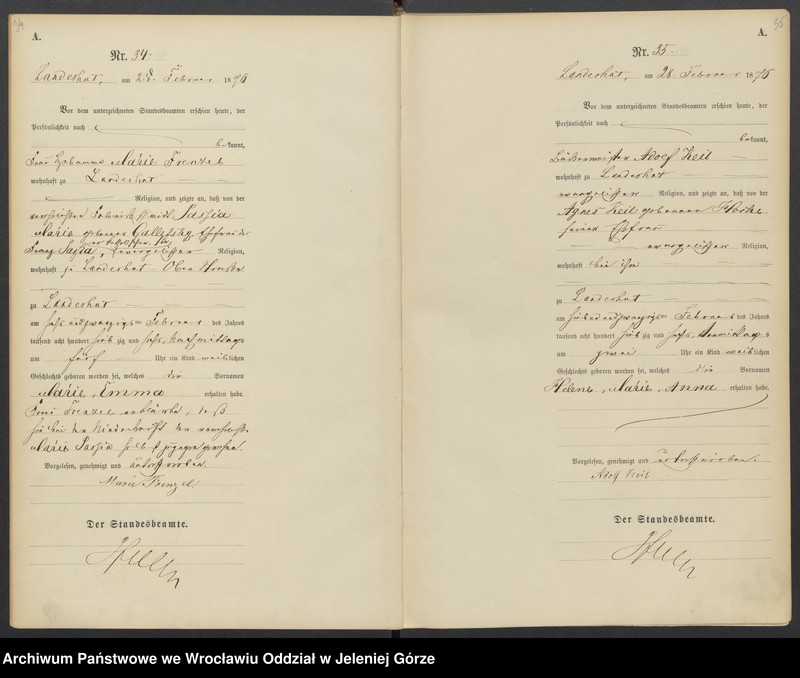 34
A.
Nr. 34.
Landeshut, am 28. Februar 1876
Vor dem unterzeichneten Standesbeamten erschien heute, der
Persönlichkeit nach
bekannt,
Frau Hebamme Marie Frenzel
wohnhaft zu Landeshut
Religion, und zeigte an, daß von der
Marie geborenen Ehefrau des
Religion,
wohnhaft zu Landeshut Ober
zu Landeshut
am sechs und zwanzigsten Februar des Jahres
tausend acht hundert siebzig und sechs Nachmittags
um fünf Uhr ein Kind weiblichen
Geschlechts geboren worden sei, welches die Vornamen
Marie, Emma erhalten habe.
Frau Frenzel erklärte, daß
sie bei der Niederkunft der
Marie selbst zugegen gewesen.
Vorgelesen, genehmigt und unterschrieben.
Marie Frenzel
Der Standesbeamte.
35
A.
Nr. 35.
Landeshut, am 28. Februar 1876
Vor dem unterzeichneten Standesbeamten erschien heute, der
Persönlichkeit nach
bekannt,
Adolf Keil
wohnhaft zu Landeshut
evangelischer Religion, und zeigte an, daß von der
Agnes Keil geborenen
seiner Ehefrau
evangelischer Religion,
wohnhaft bei ihm
zu Landeshut
am sieben und zwanzigsten Februar des Jahres
tausend acht hundert siebzig und sechs Vormittags
um zwei Uhr ein Kind weiblichen
Geschlechts geboren worden sei, welches die Vornamen
Helene, Marie, Anna erhalten habe.
Vorgelesen, genehmigt und unterschrieben.
Adolf Keil
Der Standesbeamte.
Archiwum Państwowe we Wrocławiu Oddział w Jeleniej Górze